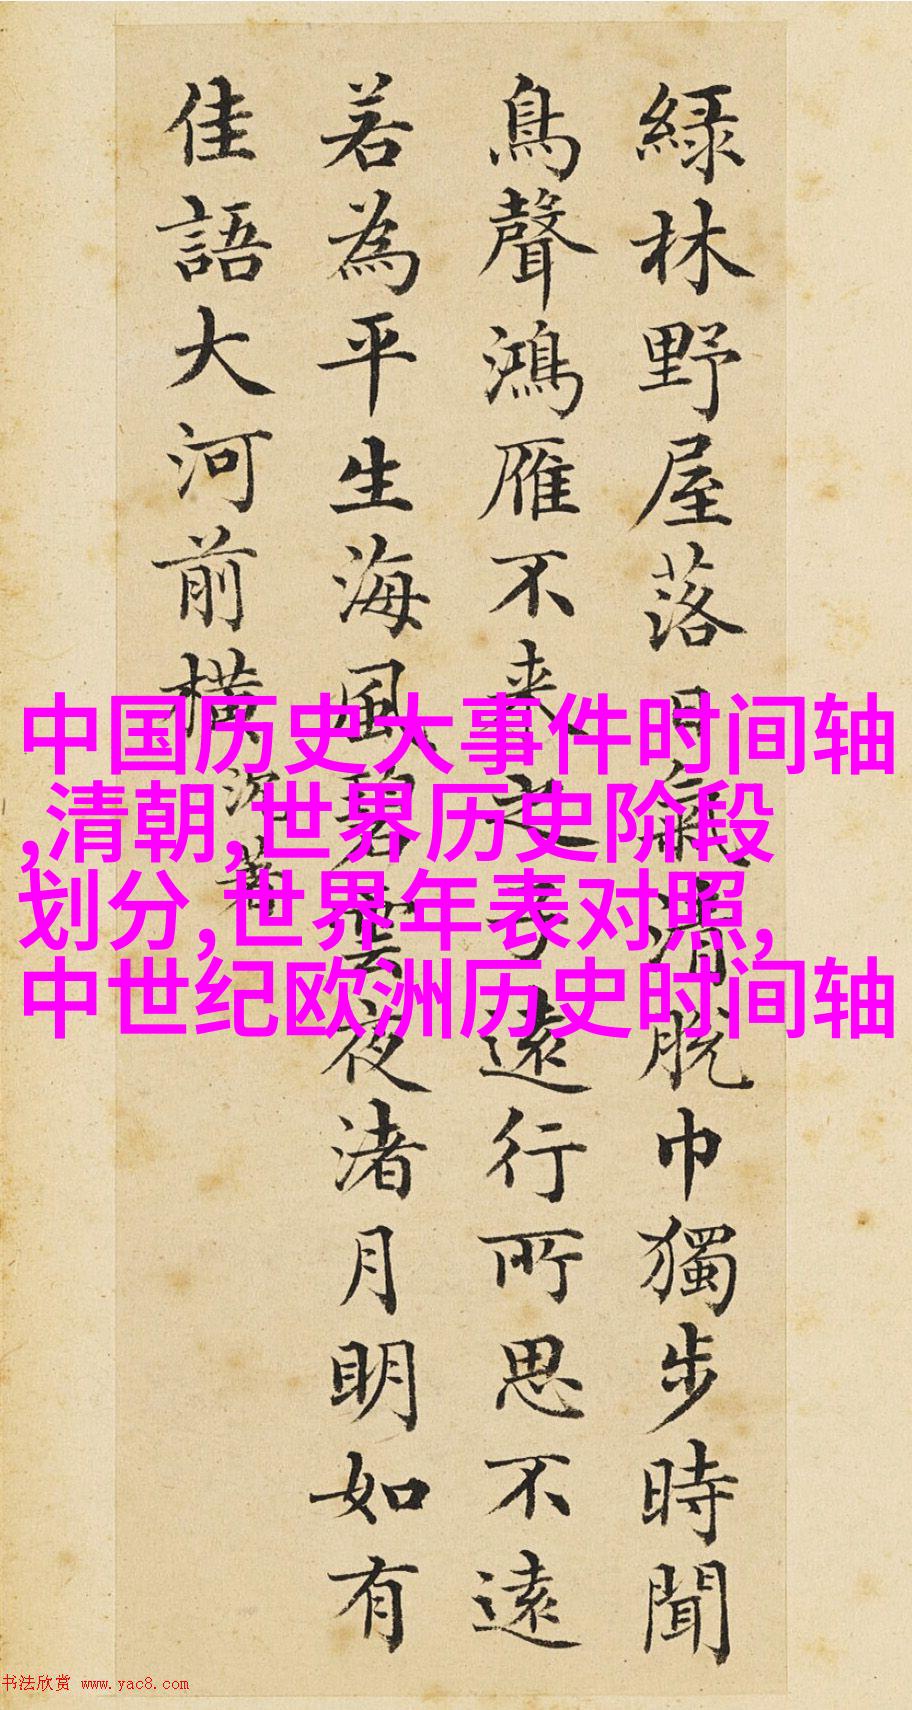 綠林野屋落日氣清脫巾獨步時聞
鳥聲鴻雁不來之子遠行所思不遠
若為平生海風碧雲夜渚月明如有
佳語大河前橫 沈荃
中国历史大事件时间轴
,清朝,世界历史阶段
划分,世界年表对照,
中世纪欧洲历史时间轴
书法欣赏 www.yac8.com